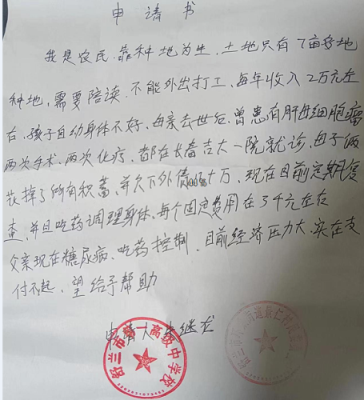 申请书
我是农民.靠种地为生.土地只有7亩多地
种地,需要陪读.不能外出打工,每年收入2万元左
右.孩子自幼身体不好.母亲去世后.曾患有肝母细胞瘤
两次手术.两次化疗,都在长春吉大一院就诊.母子俩
花掉了所有积蓄,并欠下外债 十万.现在目前定期复
查.并且吃药调理身体.每个固定费用在3千元左右
父亲现在糖尿病.吃药控制.目前经济压力大.实在支
付不起.望给予帮助
申请人
舒兰市第一高级中学校